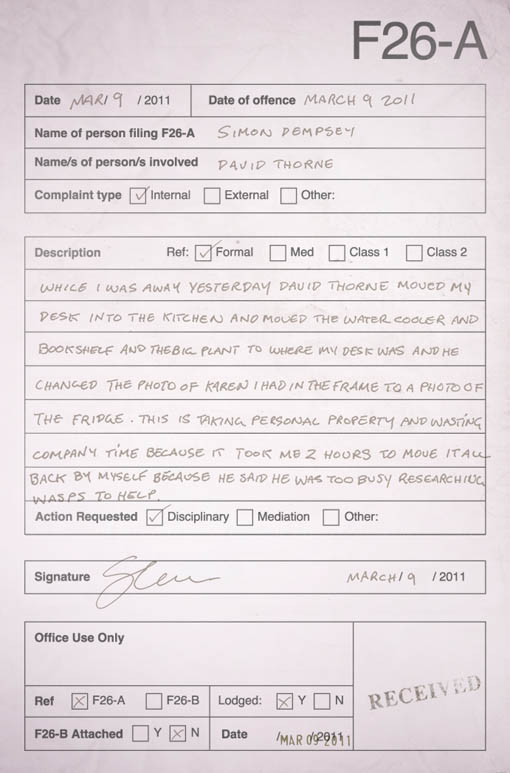 F26-A
Date MAR/9 /2011 Date of offence MARCH 9 2011
Name of person filing F26-A SIMON DEMPSEY
Name/s of person/s involved DAVID THORNE
Complaint type Internal External Other:
Description Ref: Formal Med Class 1 Class 2
WHILE I WAS AWAY YESTERDAY DAVID THORNE MOVED MY
DESK INTO THE KITCHEN AND MOVED THE WATER COOLER AND
BOOKSHELF AND THE BIG PLANT TO WHERE MY DESK WAS AND HE
CHANGED THE PHOTO OF KAREN I HAD IN THE FRAME TO A PHOTO OF
THE FRIDGE. THIS IS TAKING PERSONAL PROPERTY AND WASTING
COMPANY TIME BECAUSE IT TOOK ME 2 HOURS TO MOVE IT ALL
BACK BY MYSELF BECAUSE HE SAID HE WAS TOO BUSY RESEARCHING
WASPS TO HELP.
Action Requested Disciplinary Mediation Other:
Signature MARCH/9 /2011
Office Use Only
Ref F26-A F26-B Lodged: Y N
RECEIVED
F26-B Attached Y N Date / /2011
MAR 09 2011